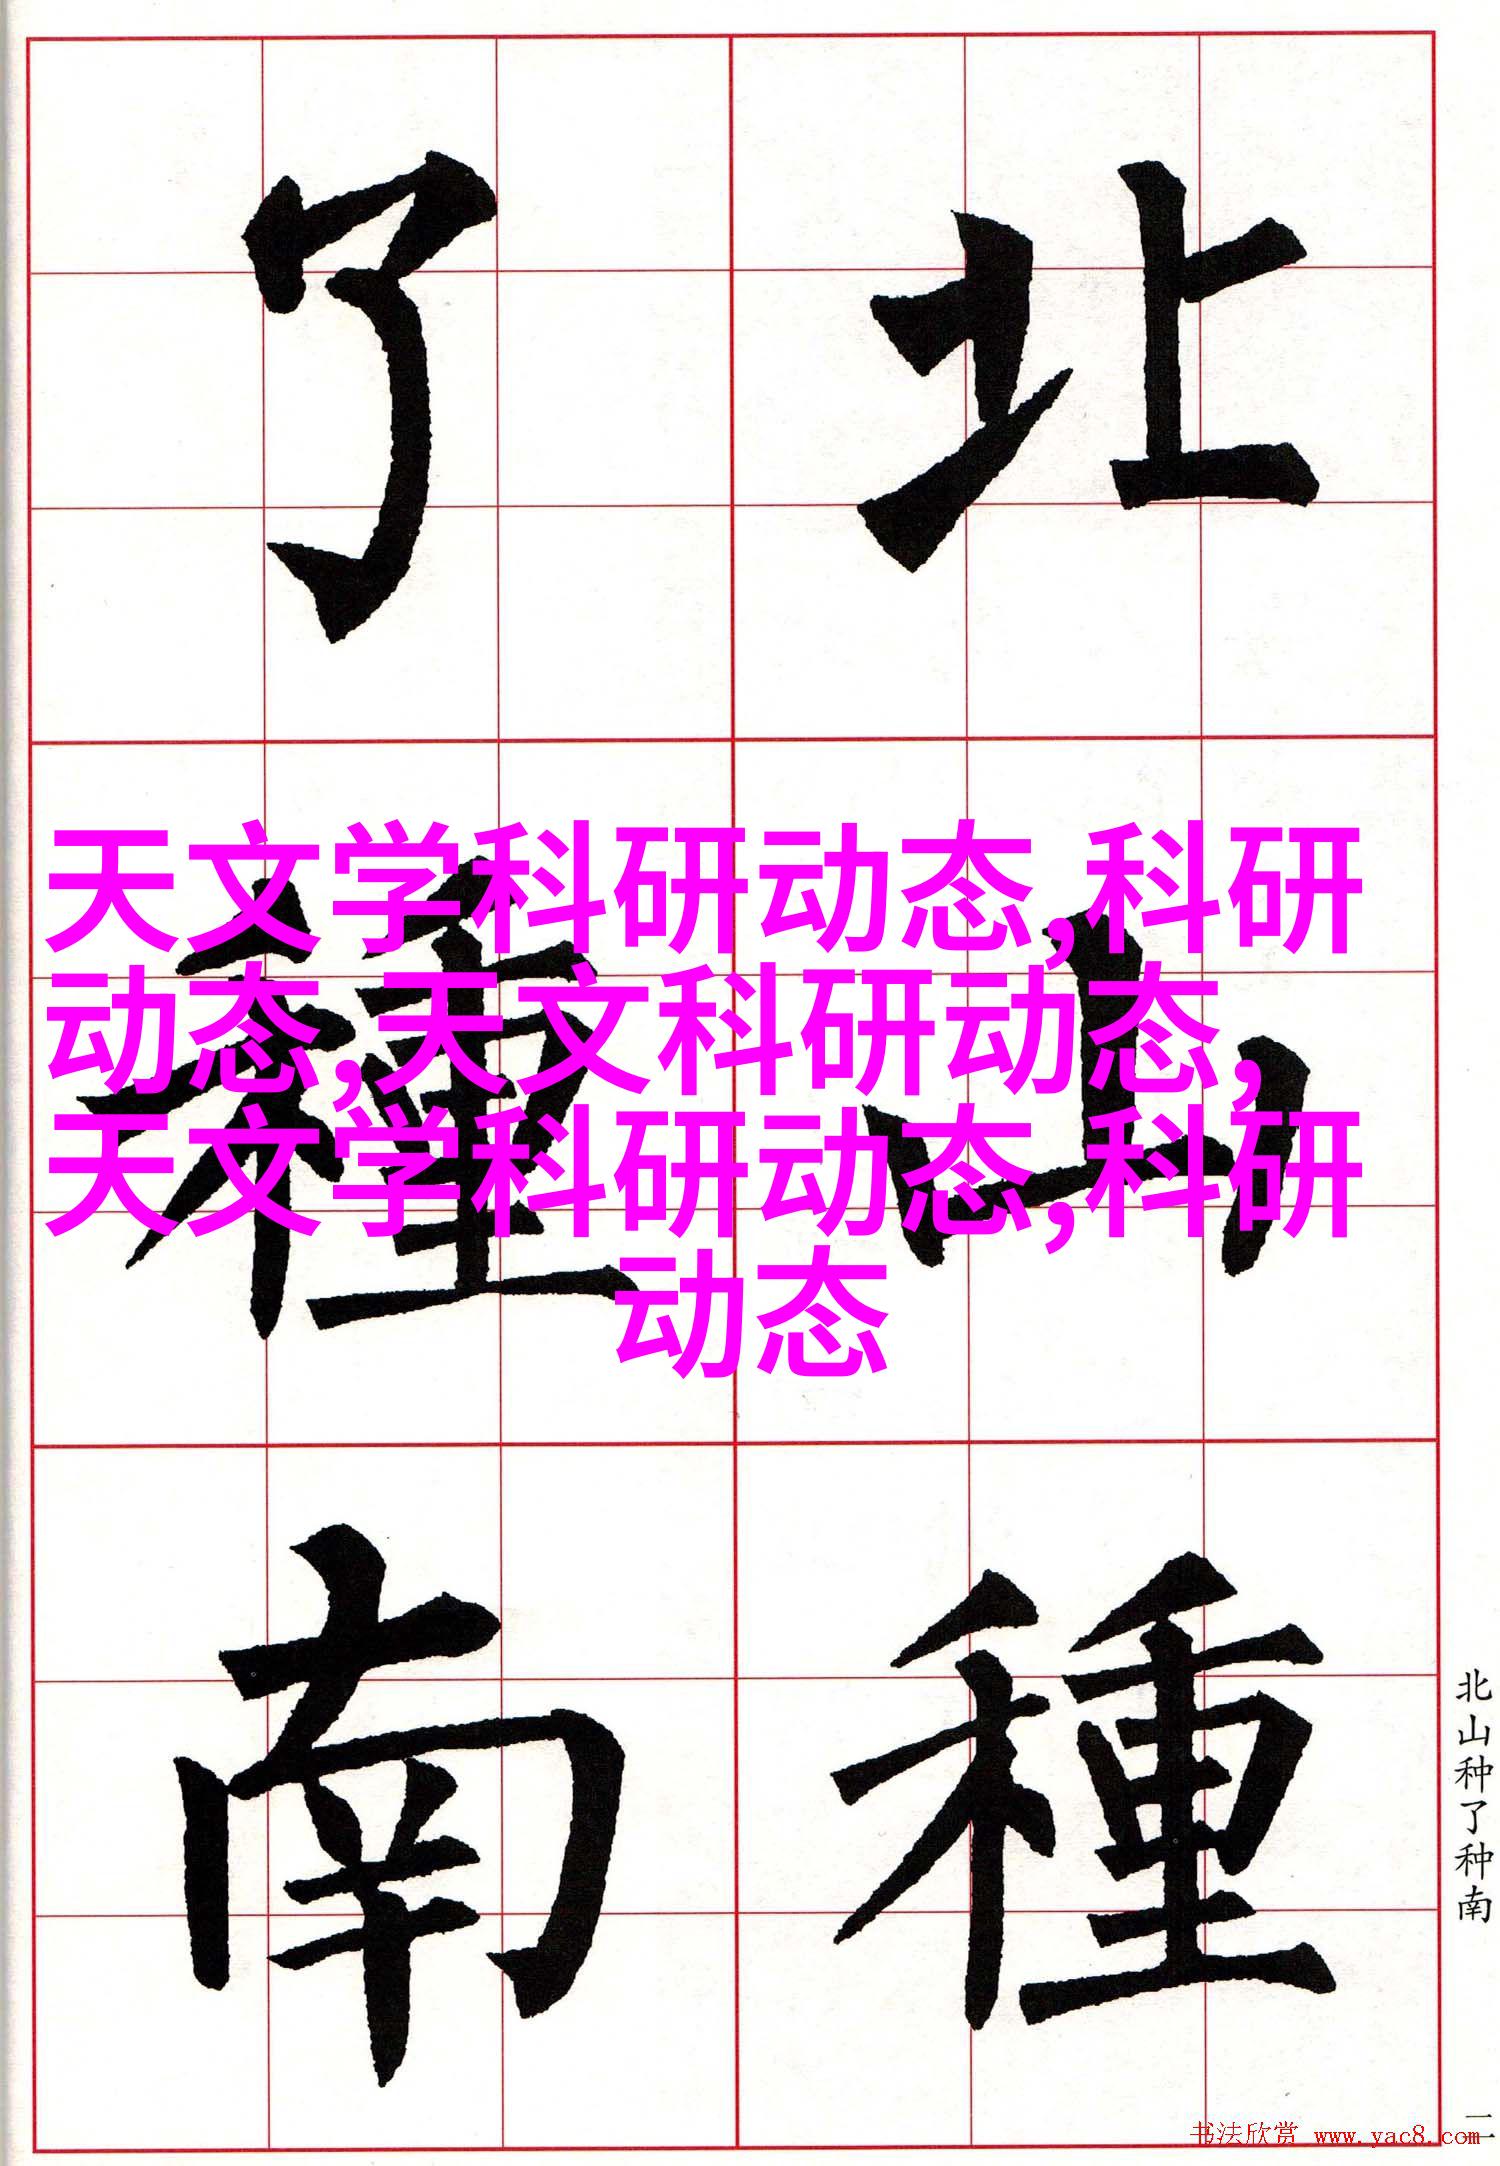 北山種
了種南
天文学科研动态,科研
动态,天文科研动态,
天文学科研动态,科研
动态
北山种了种南
二
书法欣赏 www.yac8.com